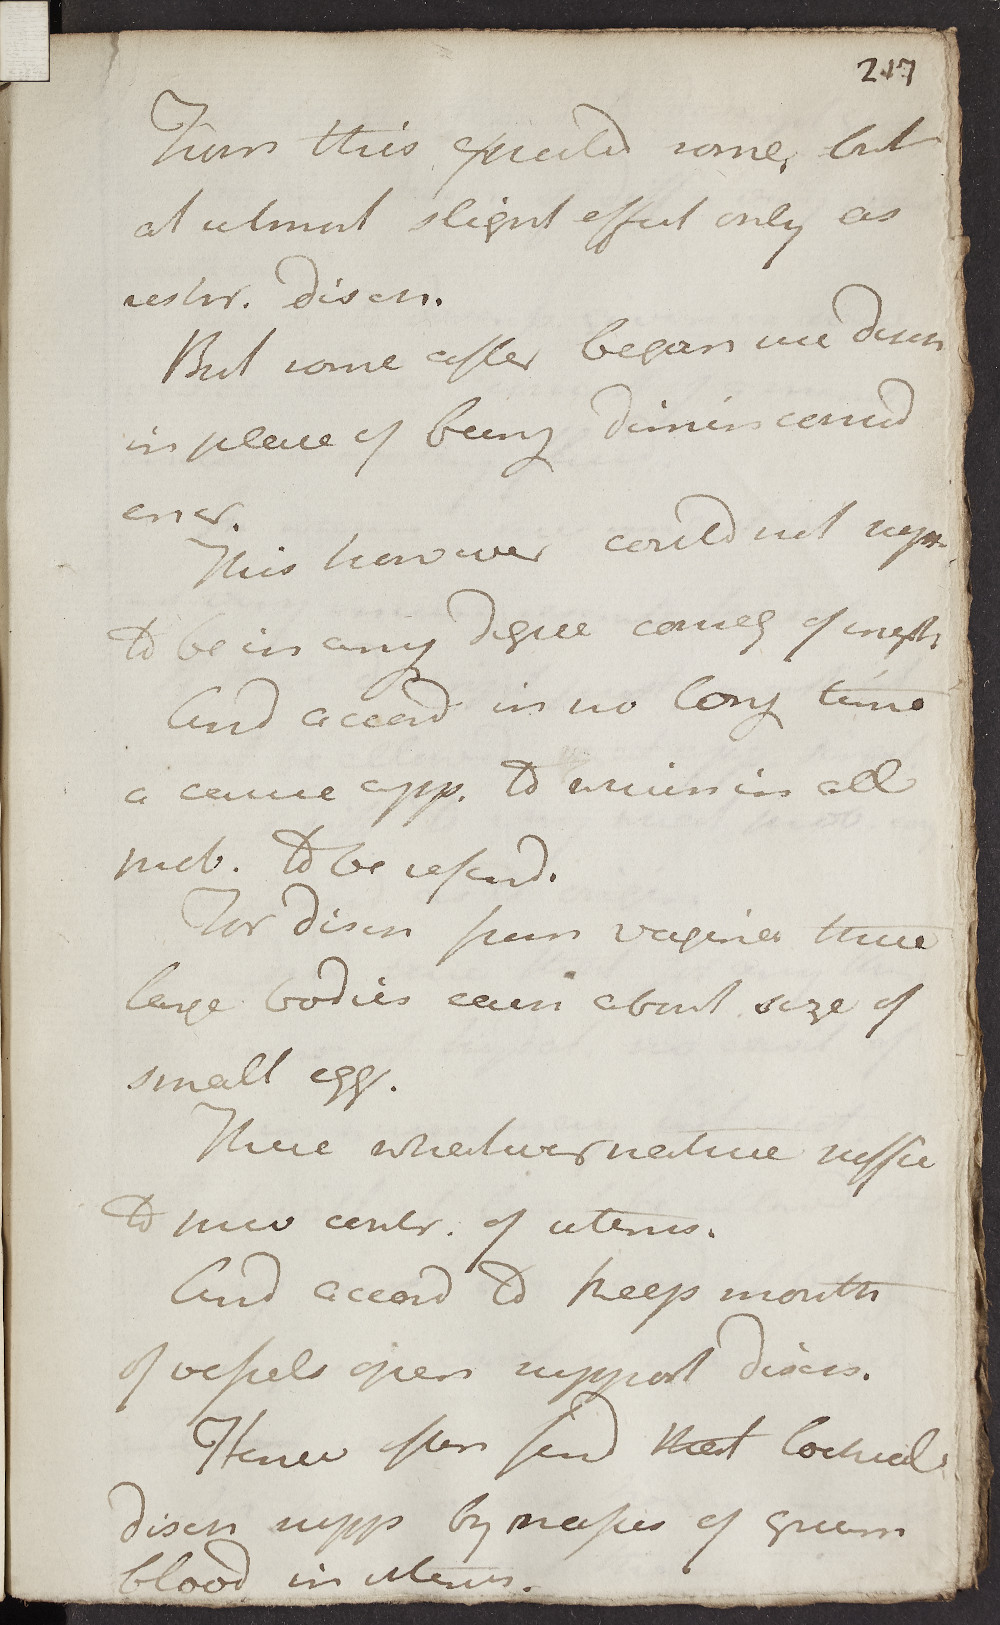 217
From this expected some, but
at utmost slight effect only as
restr. disch.
But some after began ue disch
in place of being dimin consid
encr.
This however could not supp
to be in any degree conseq of meth
And accord in no long time
a cause app. to which in all
prob. to be refered.
For disch from vagina three
large bodies each about size of
small egg.
These whatever nature suffic
to prev contr. of uterus.
And accord to keep mouth
of vessels open support disch.
Hence often find that lochial
disch supp by masses of grum
blood in uterus.